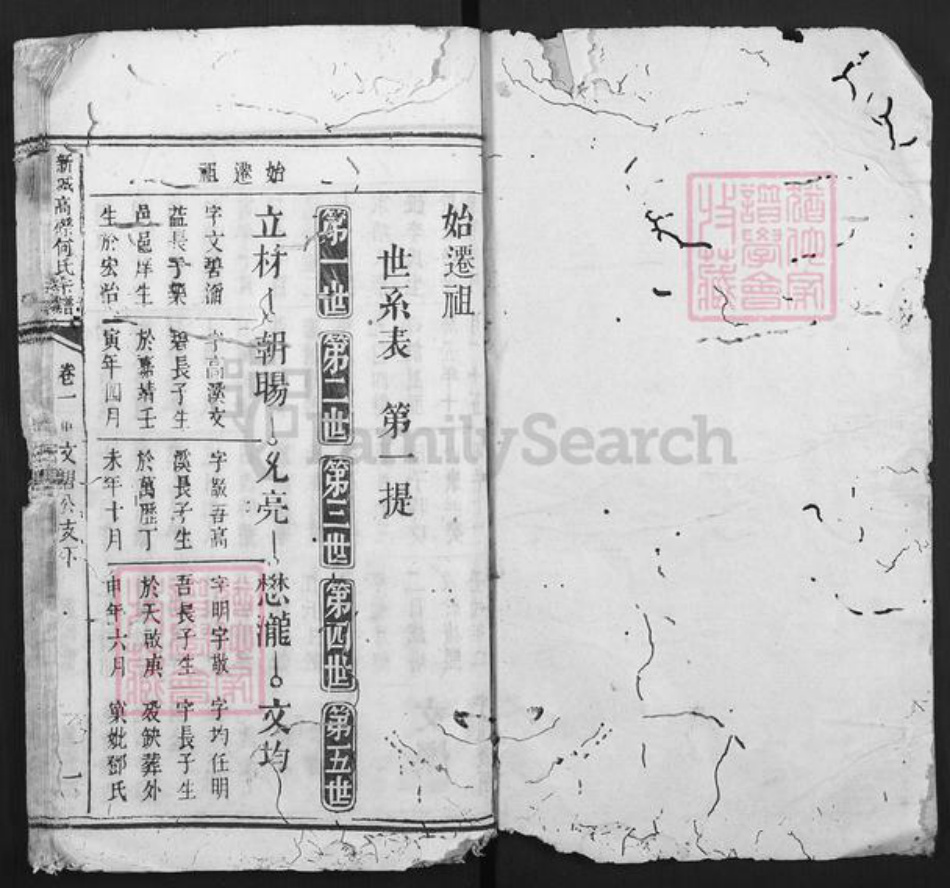 始遷祖
世系表 第一提
第一世 第二世 第三世 第四世 第五世
始遷祖
立材 朝暘 文均
字文碧湽
益長子樂
邑邑庠生
生於宏治
字高溪文
碧長子生
於嘉靖壬
寅年四月
字敬吾高
溪長子生
於萬歷丁
未年十月
字明宇敬
吾長子生
於天啟庚
申年六月
字均任明
宇長子生
歿缺葬外
窠妣鄧氏
新城高 何氏宗譜
卷一
文 公支下
一
FamilySearch
猶他家
譜學會
收藏
猶他家
譜學會
收藏